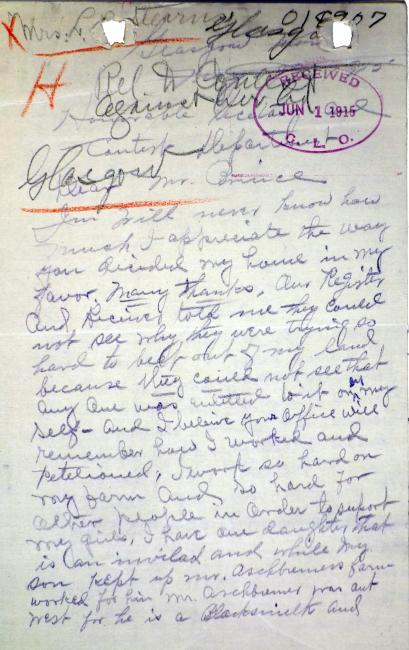 Mrs. L. Stearns
Glasgow
014907
H
Rel. to Contest
against her Ed
RECEIVED
JUN 1 1915
G. L. O.
Honorable
Contest Department
Glasgow
Dear Mr.
will never know how
much I appreciate the way
you decided my home in my
favor. Many thanks, Our Register
and Reciever told me they could
not see why they were trying so
hard to beat out of my land
because they could not see that
any one was entitled to it but my
self - and I believe your office will
remember how I worked and
petitioned, I work so hard on
my farm and so hard for
other people in order to support
my girls, I have one daughter that
is an invilad and while my
son kept up mr. Aschbremers farm
worked for him mr. Aschbremer was out
west for he is a Blacksmith and